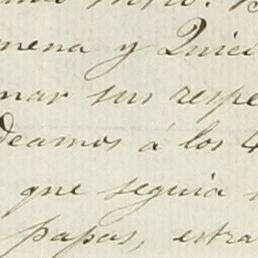 mena y Quici
mar sus respe
deamos á los 4
que seguia
papas, estra